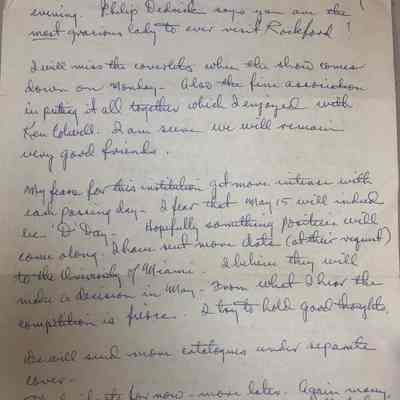 evening. Philip Dedrick says you are the
most gracious lady to ever visit Rockford!
I will miss the coverlets when the show comes
down on Monday - Also the fine association
in putting it all together which I enjoyed with
Ken Colwell. I am sure we will remain
very good friends.
My fears for this institution get more intense with
each passing day - I fear that May 15 will indeed
be "D" Day - Hopefully something positive will
come along. I have sent more data (at their request)
to the University of Miami. I believe they will
make a decision in May - From what I hear the
competition is fierce. I try to hold good thoughts.
We will send more catalogues under separate
cover -
for now - more later. Again many,